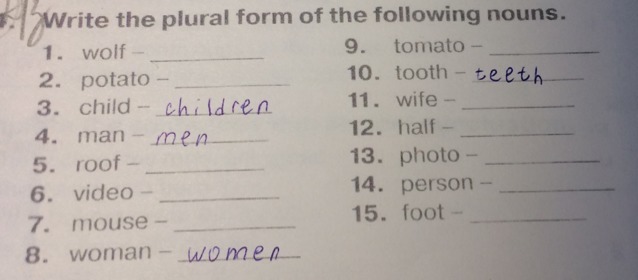 Write the plural form of the following nouns.
1. wolf –
2. potato –
3. child – children
4. man – men
5. roof –
6. video –
7. mouse –
8. woman – women
9. tomato –
10. tooth – teeth
11. wife –
12. half –
13. photo –
14. person –
15. foot –